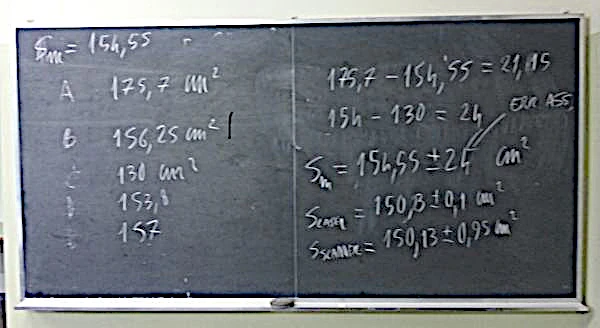 Sm = 154,55
A 175,7 cm²
B 156,25 cm²
C 130 cm²
D 153,8
E 157
175,7 - 154,55 = 21,15
154 - 130 = 24
ERR ASS.
Sm = 154,55 ± 24 cm²
= 150,3 ± 0,1 cm²
S SCANNER = 150,13 ± 0,95 cm²